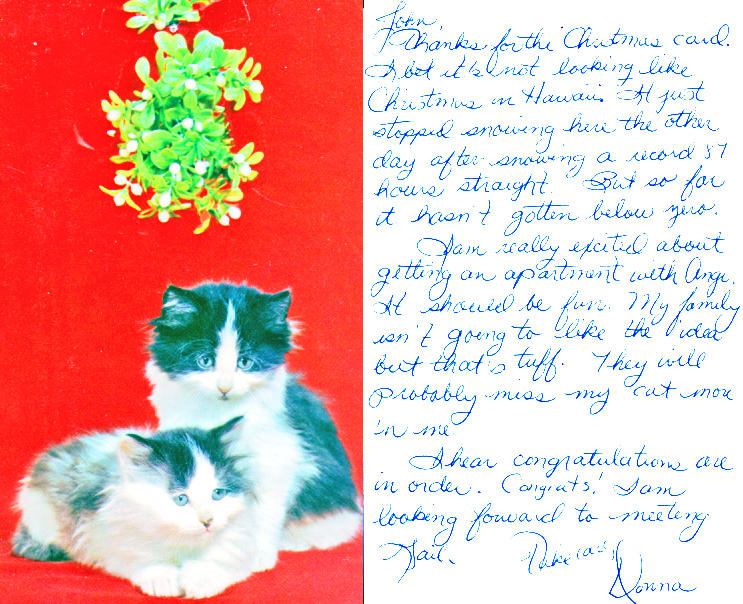 John,
Thanks for the Christmas card.
I bet it's not looking like
Christmas in Hawaii. It just
stopped snowing here the other
day after snowing a record 37
hours straight. But so far
it hasn't gotten below zero.
I am really excited about
getting an apartment with Angi.
It should be fun. My family
isn't going to like the idea
but that's tuff. They will
probably miss my cat more
'n me.
I hear congratulations are
in order. Congrats! I am
looking forward to meeting
Gail.
Donna